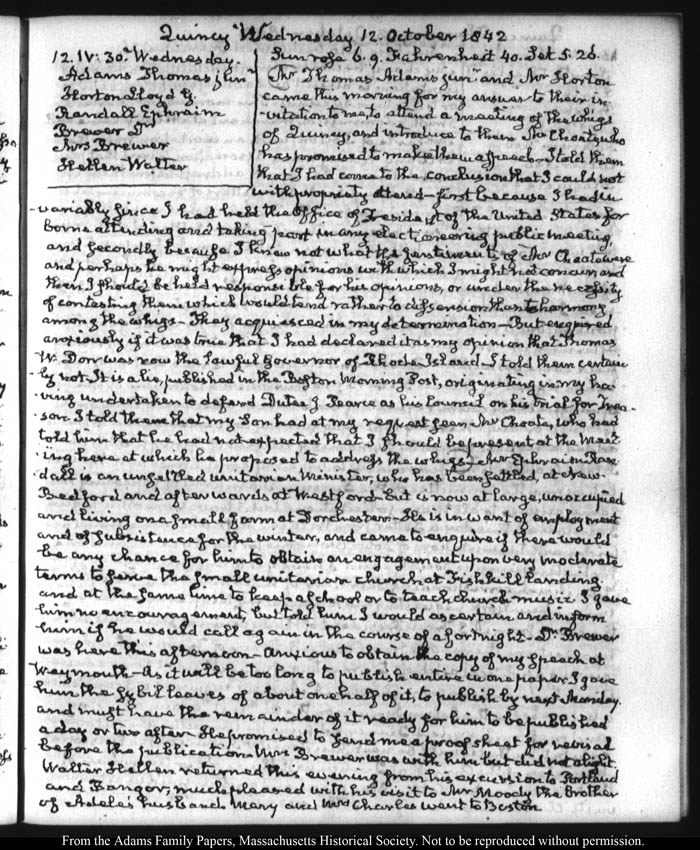 Quincy Wednesday 12. October 1842
12. IV:30. Wednesday.
Adams Thomas jun.r
Horton Lloyd G.
Randall Ephraim
Brewer Dr
Mrs Brewer
Hellen Walter
Sun rose 6. 9. Fahrenheit 40. Set 5. 26.
Mr Thomas Adams jun.r and Mr Horton
came this morning for my answer to their in-
vitation to me, to attend a meeting of the whigs
of Quincy, and introduce to them Mr Choate, who
has promised to make them a speech—I told them
that I had come to the conclusion that I could not
with propriety attend—first because I had in-
variably since I had held the Office of President of the United States for-
borne attending and taking part in any electioneering public meeting,
and secondly because I knew not what the sentiments of Mr Choate were
and perhaps he might express opinions with which I might not concur, and
then I should be held responsible for his opinions, or under the necessity
of contesting them which would tend rather to dissension than to harmony
among the whigs—They acquiesced in my determination—But enquired
anxiously if it was true that I had declared it as my opinion that Thomas
W. Dorr was now the lawful Governor of Rhode Island—I told them certain-
ly not. It is a lie, published in the Boston Morning Post, originating in my ha-
ving undertaken to defend Dutee J Pearce as his Counsel on his trial for Trea-
son. I told them that my Son had at my request seen Mr Choate, who had
told him that he had not expected that I should be present at the Meet-
ing here at which he proposed to address the whigs—Mr Ephraim Ran-
dall is an unsettled unitarian Minister, who has been settled, at New-
Bedford and afterwards at Westford but is now at large, unoccupied
and living on a small farm at Dorchester—He is in want of employment
and of subsistence for the winter, and came to enquire if there would
be any chance for him to obtain an engagement upon very moderate
terms to serve the small unitarian church at Fishkill Landing.
and at the same time to keep a school or to teach church-music. I gave
him no encouragement, but told him I would ascertain and inform
him if he would call again in the course of a fortnight—Dr Brewer
was here this afternoon—Anxious to obtain the copy of my speech at
Weymouth—As it will be too long to publish entire in one paper, I gave
him the Sybil leaves of about one half of it, to publish by next Monday.
and must have the remainder of it ready for him to be published
a day or two after. He promised to send me a proof sheet for revisal
before the publication. Mrs Brewer was with him but did not alight.
Walter Hellen returned this evening from his excursion to Portland
and Bangor, much pleased with his visit to Mr Moody the brother
of Adele's husband. Mary and Mrs Charles went to Boston
From the Adams Family Papers, Massachusetts Historical Society. Not to be reproduced without permission.